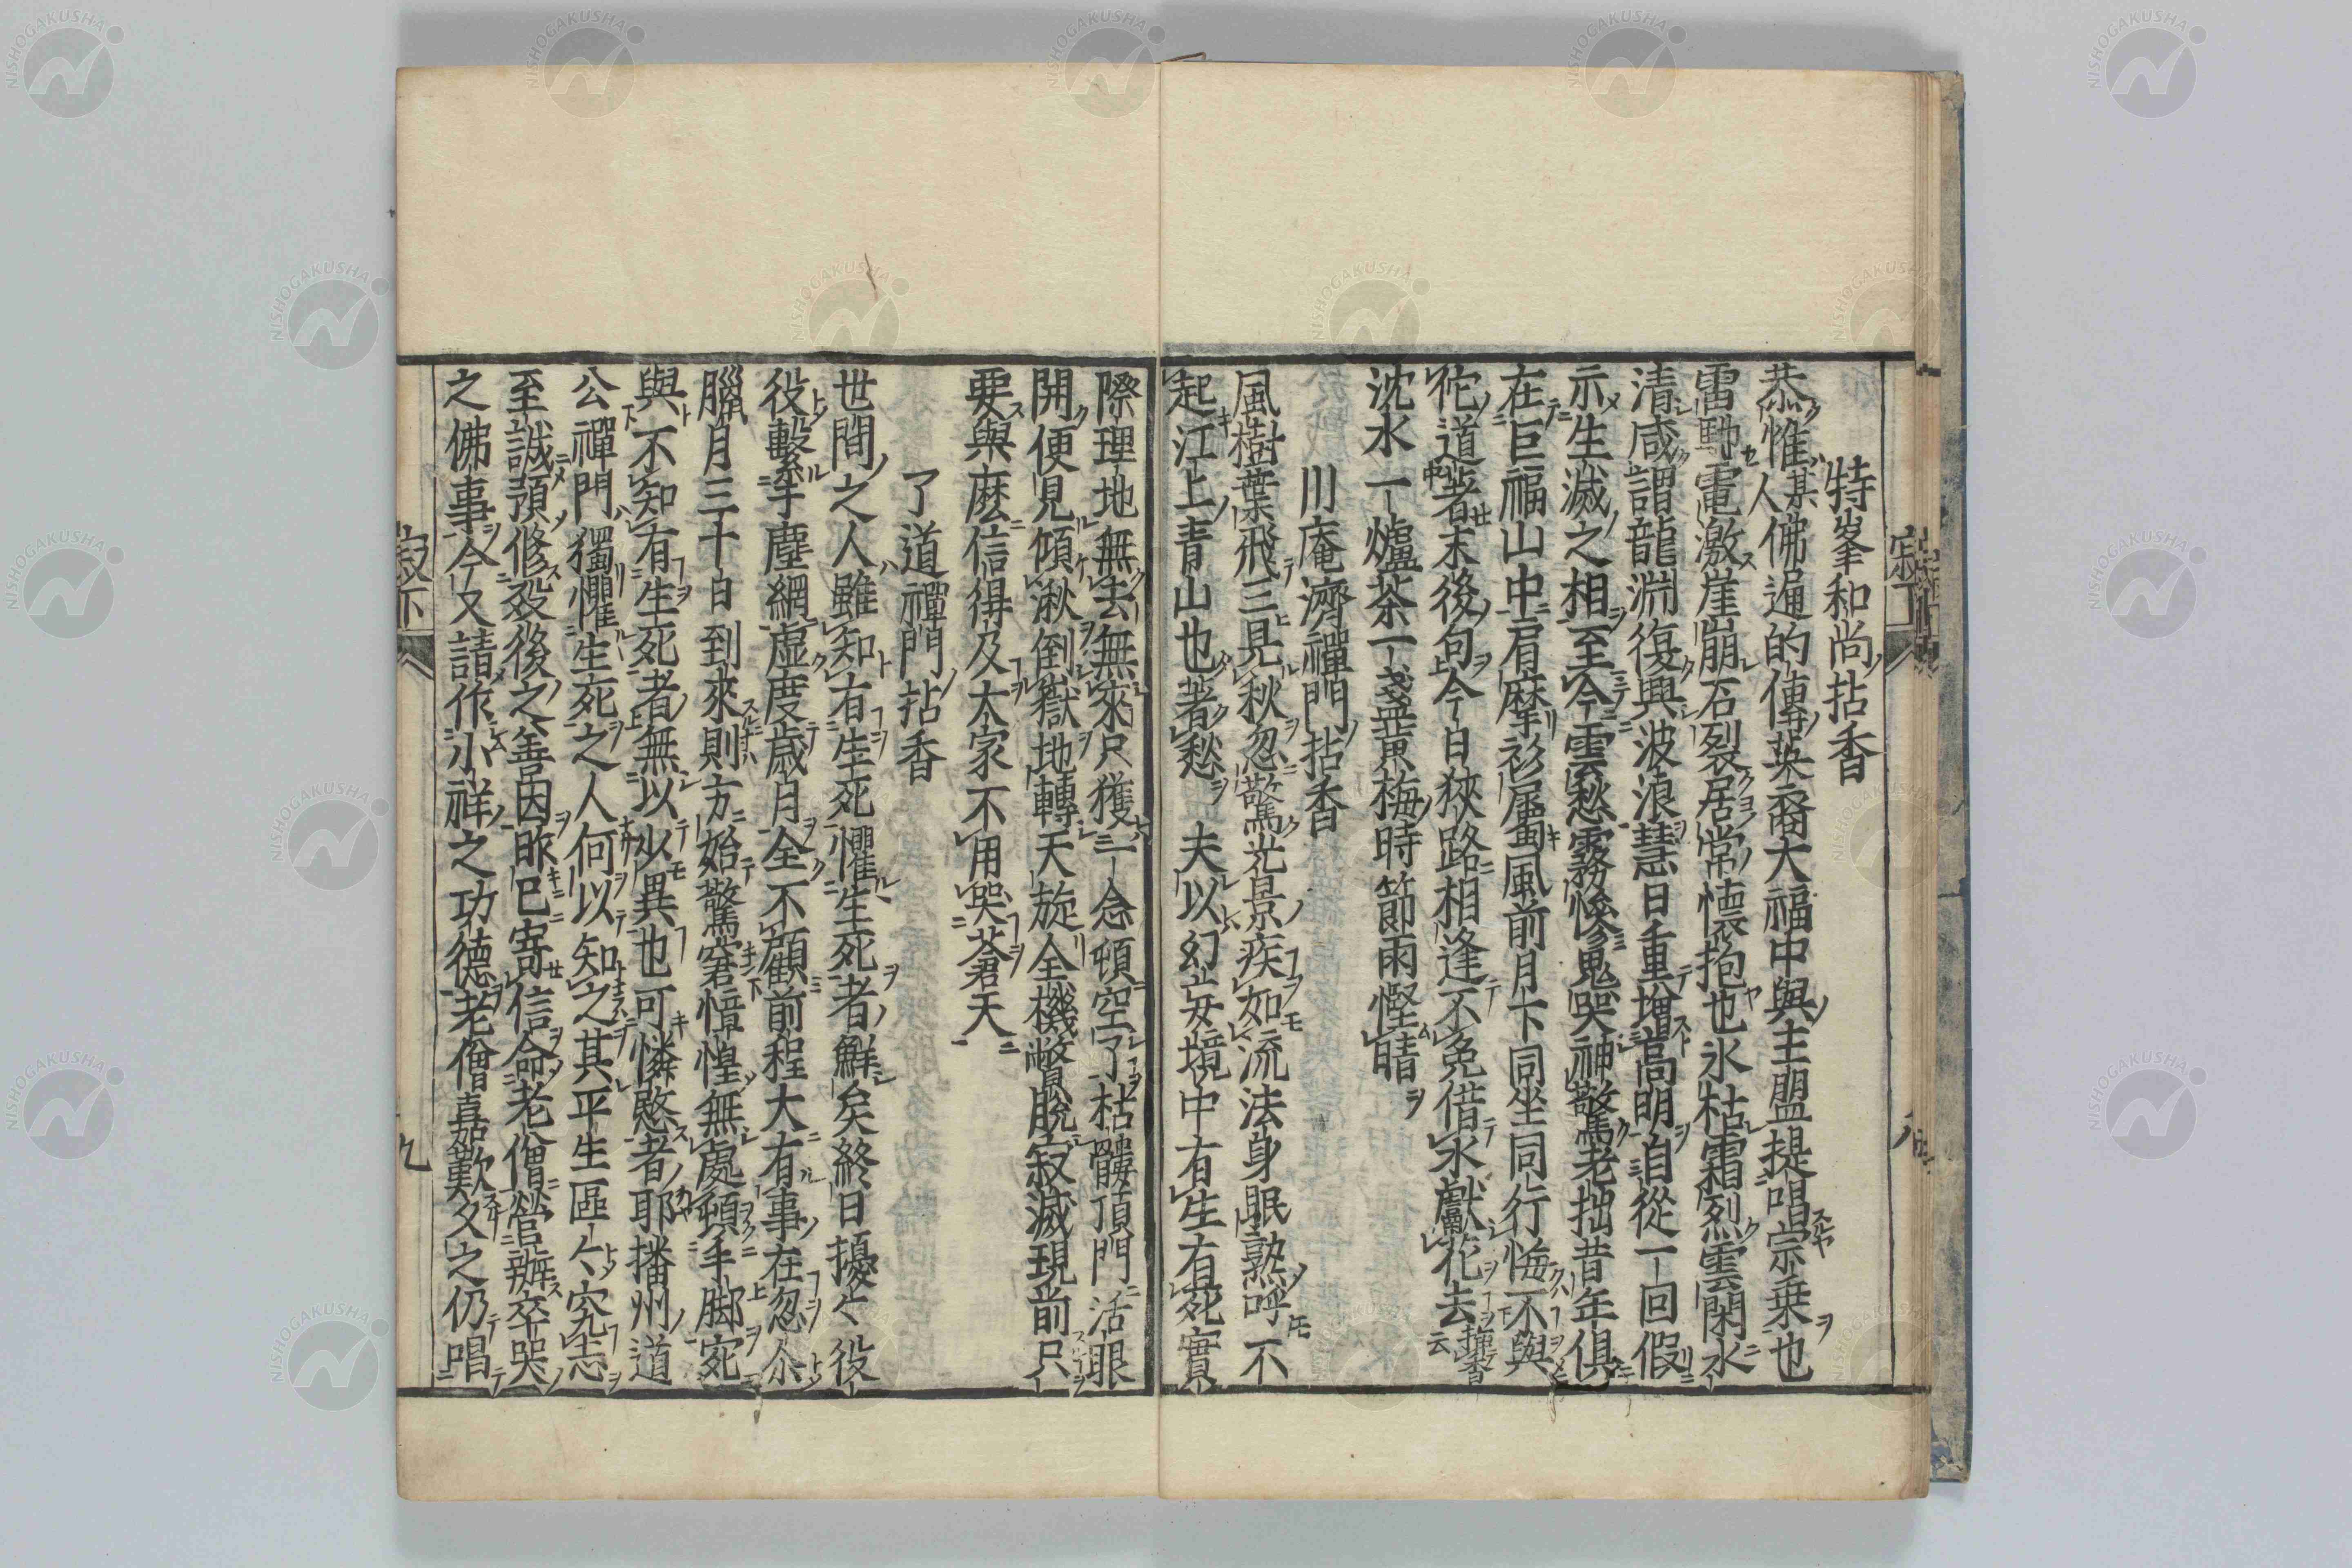 特峯和尚拈香
恭惟某人佛通的傳英裔大福中興主盟提唱宗乗也
雷馳電激崖崩石裂居常懐抱也氷枯霜烈雲閑水
清咸謂龍淵復興波浪慧日重増高明自從一回假
示生滅之相至今雲愁霧惨鬼哭神驚老拙昔年倶
在巨福山中肩摩衫属風前月下同坐同行悔不與
佗道著末後句今日狹路相逢不免借水獻花去挿香云
沈水一爐茶一盞黄梅時節雨慳晴
川庵濟禪門拈香
風樹葉飛三見秋忽驚光景疾如流法身眠熟呼不
起江上青山也著愁　夫以幻妄境中有生有死實
際理地無去無來只獲一念頓空了枯髏頂門活眼
開便見傾湫倒嶽地轉天旋全機瞥脱寂滅現前只
要與麽信得及大家不用哭蒼天
了道禪門拈香
世間之人雖知有生死懼生死者鮮矣終日擾々役
役繋手塵網虚度歳月全不顧前程大有事在忽尒
臘月三十日到來則方始驚窘愔惶無處頓手脚宛
與不知有生死者無以少異也可憐愍者耶播州道
公禪門獨懼生死之人何以知之其平生區々究志
至誠預修殁後之善因昨已寄信命老僧營辦卒哭
之佛事今又請作小祥之功德老僧嘉歎久之仍唱
寂下
九